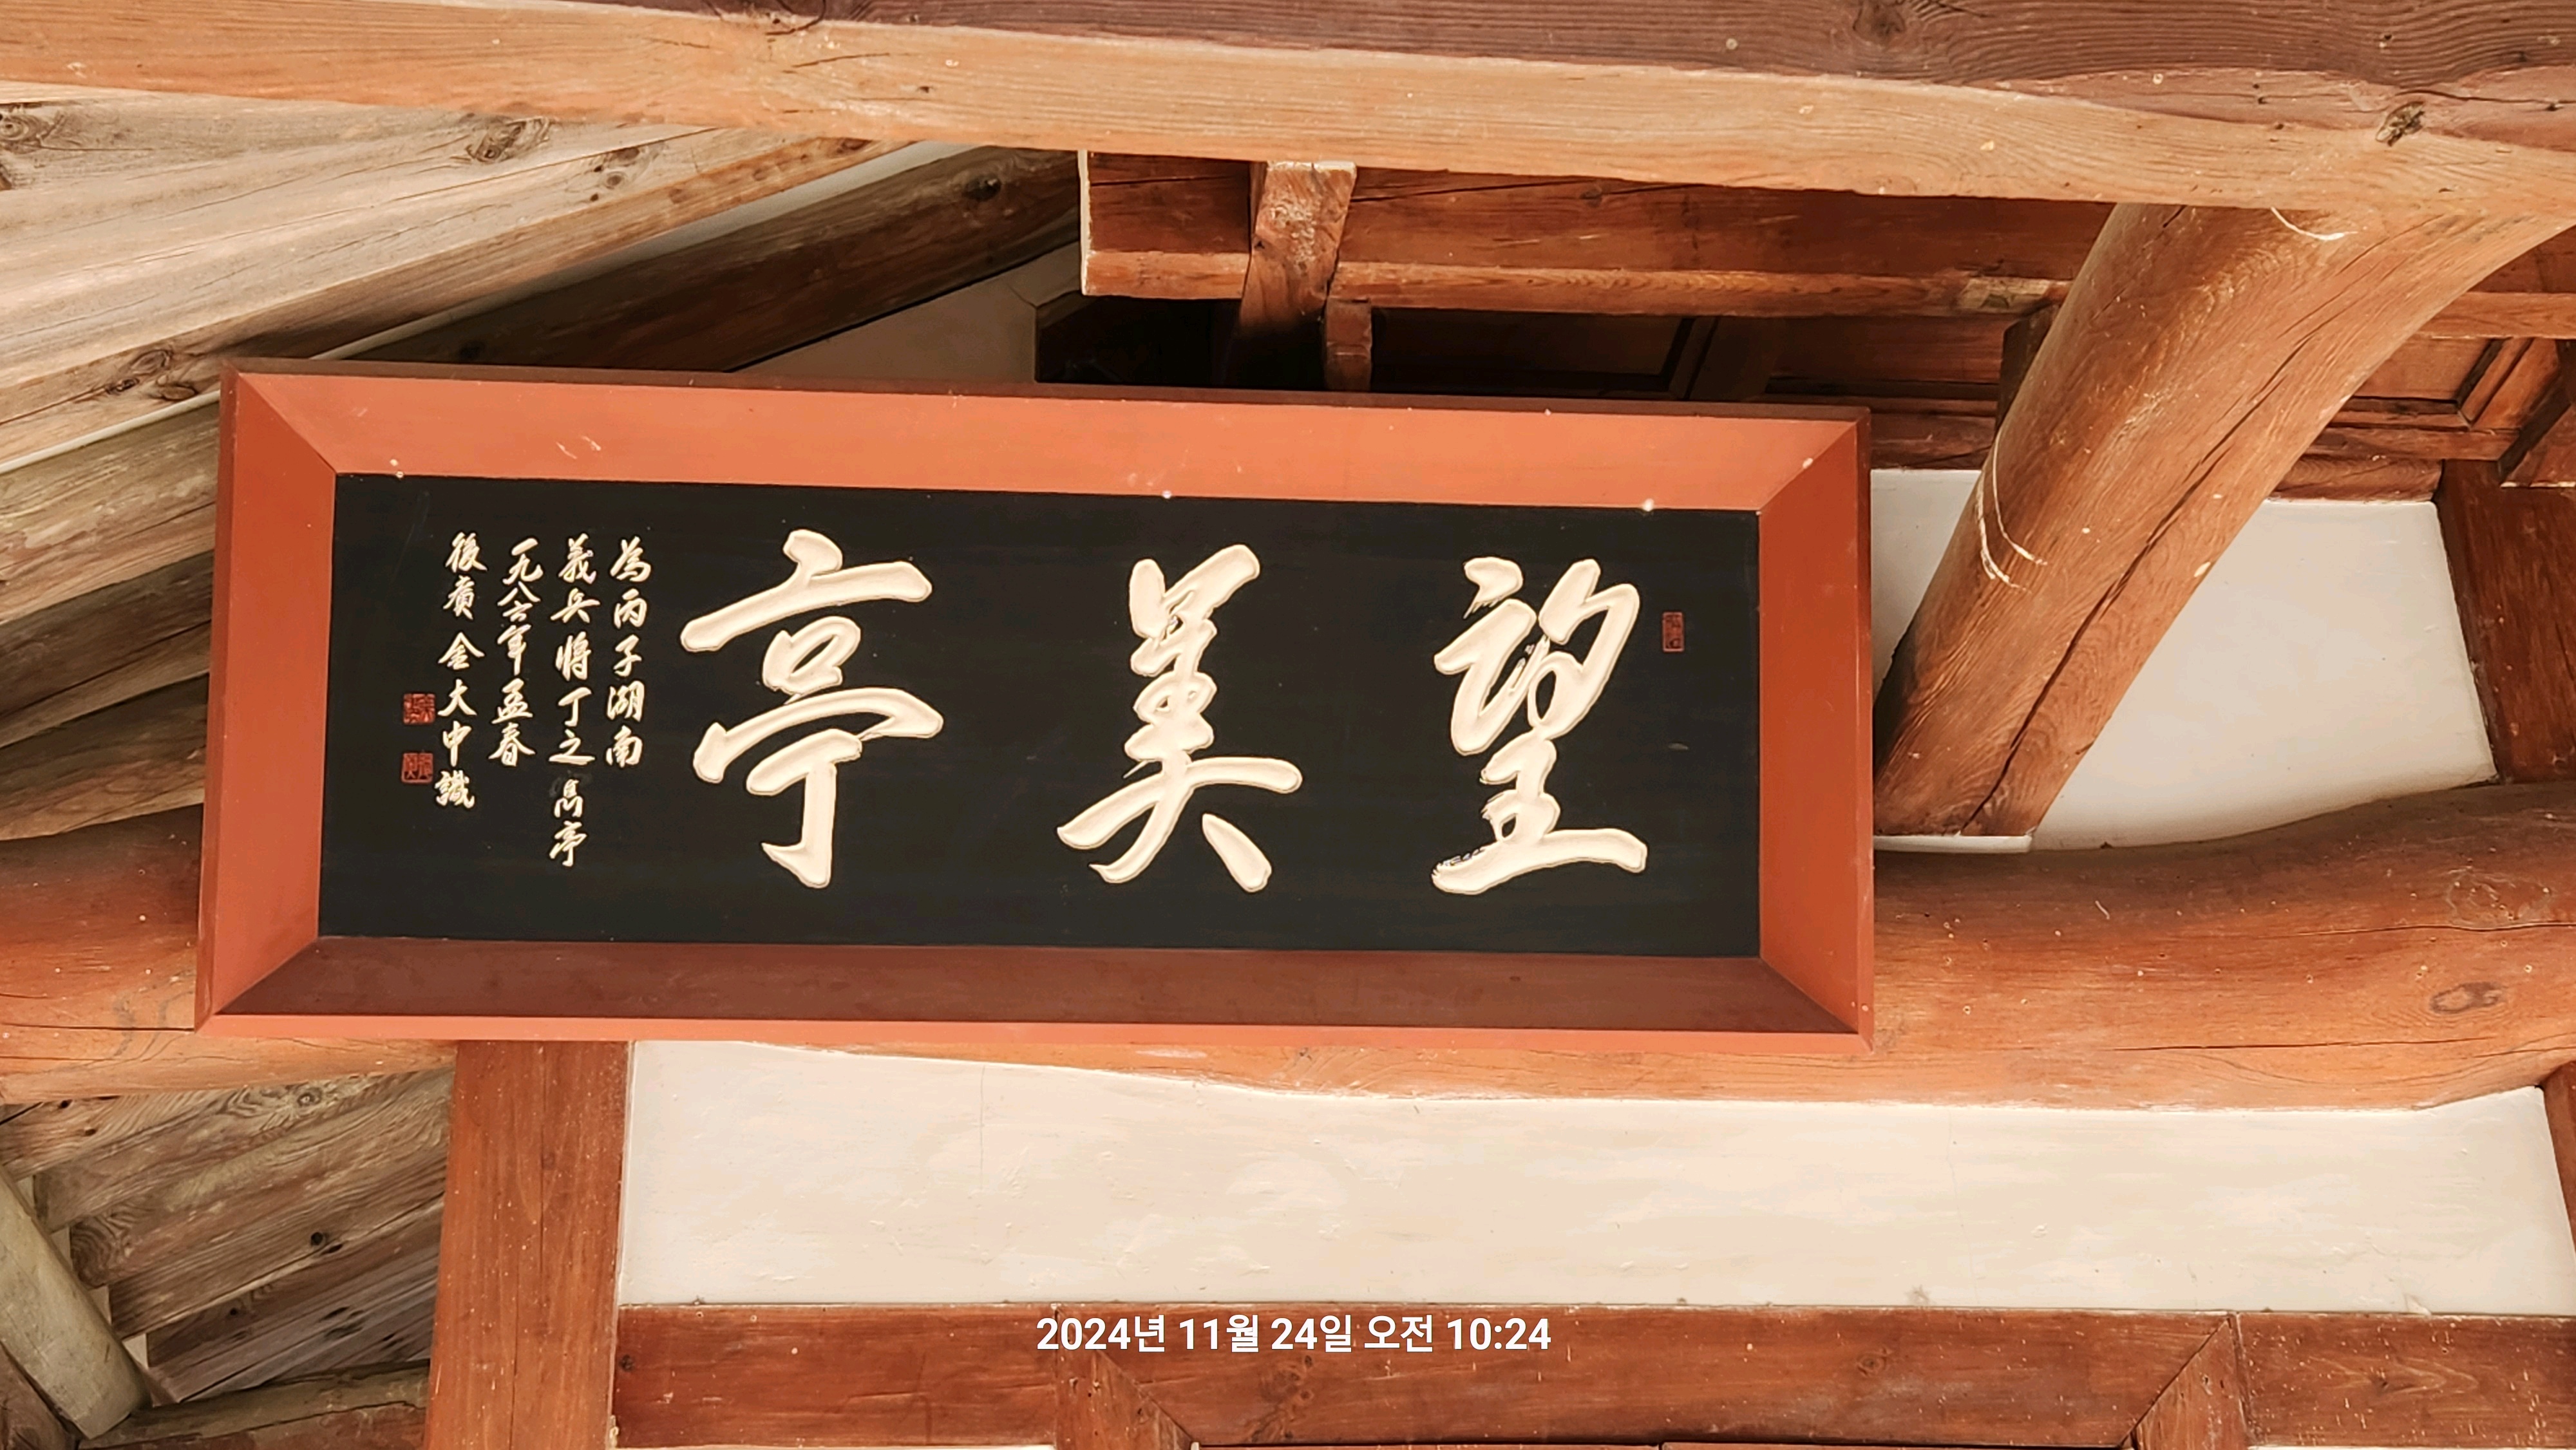 望美亭
為丙子湖南
義兵將丁之雋亭
一九八六年孟春
後廣金大中識
2024년 11월 24일 오전 10:24